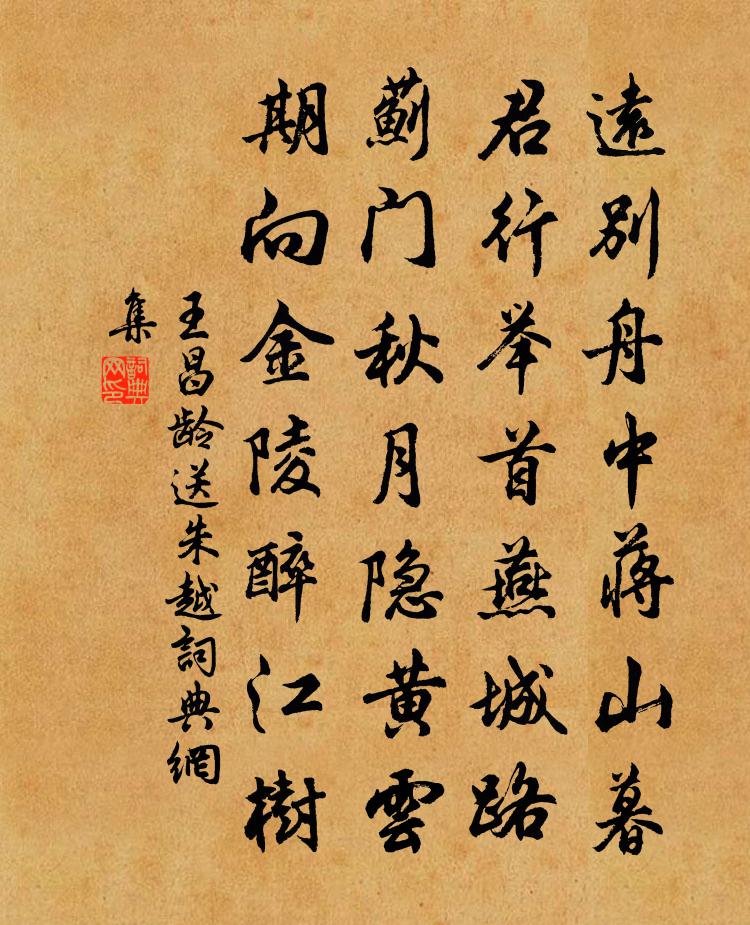 遠别舟中蒋山暮
君行举首燕城路
薊门秋月隐黄雲
期向金陵醉江樹
王昌龄送朱越詞典網
集
詞典
网印